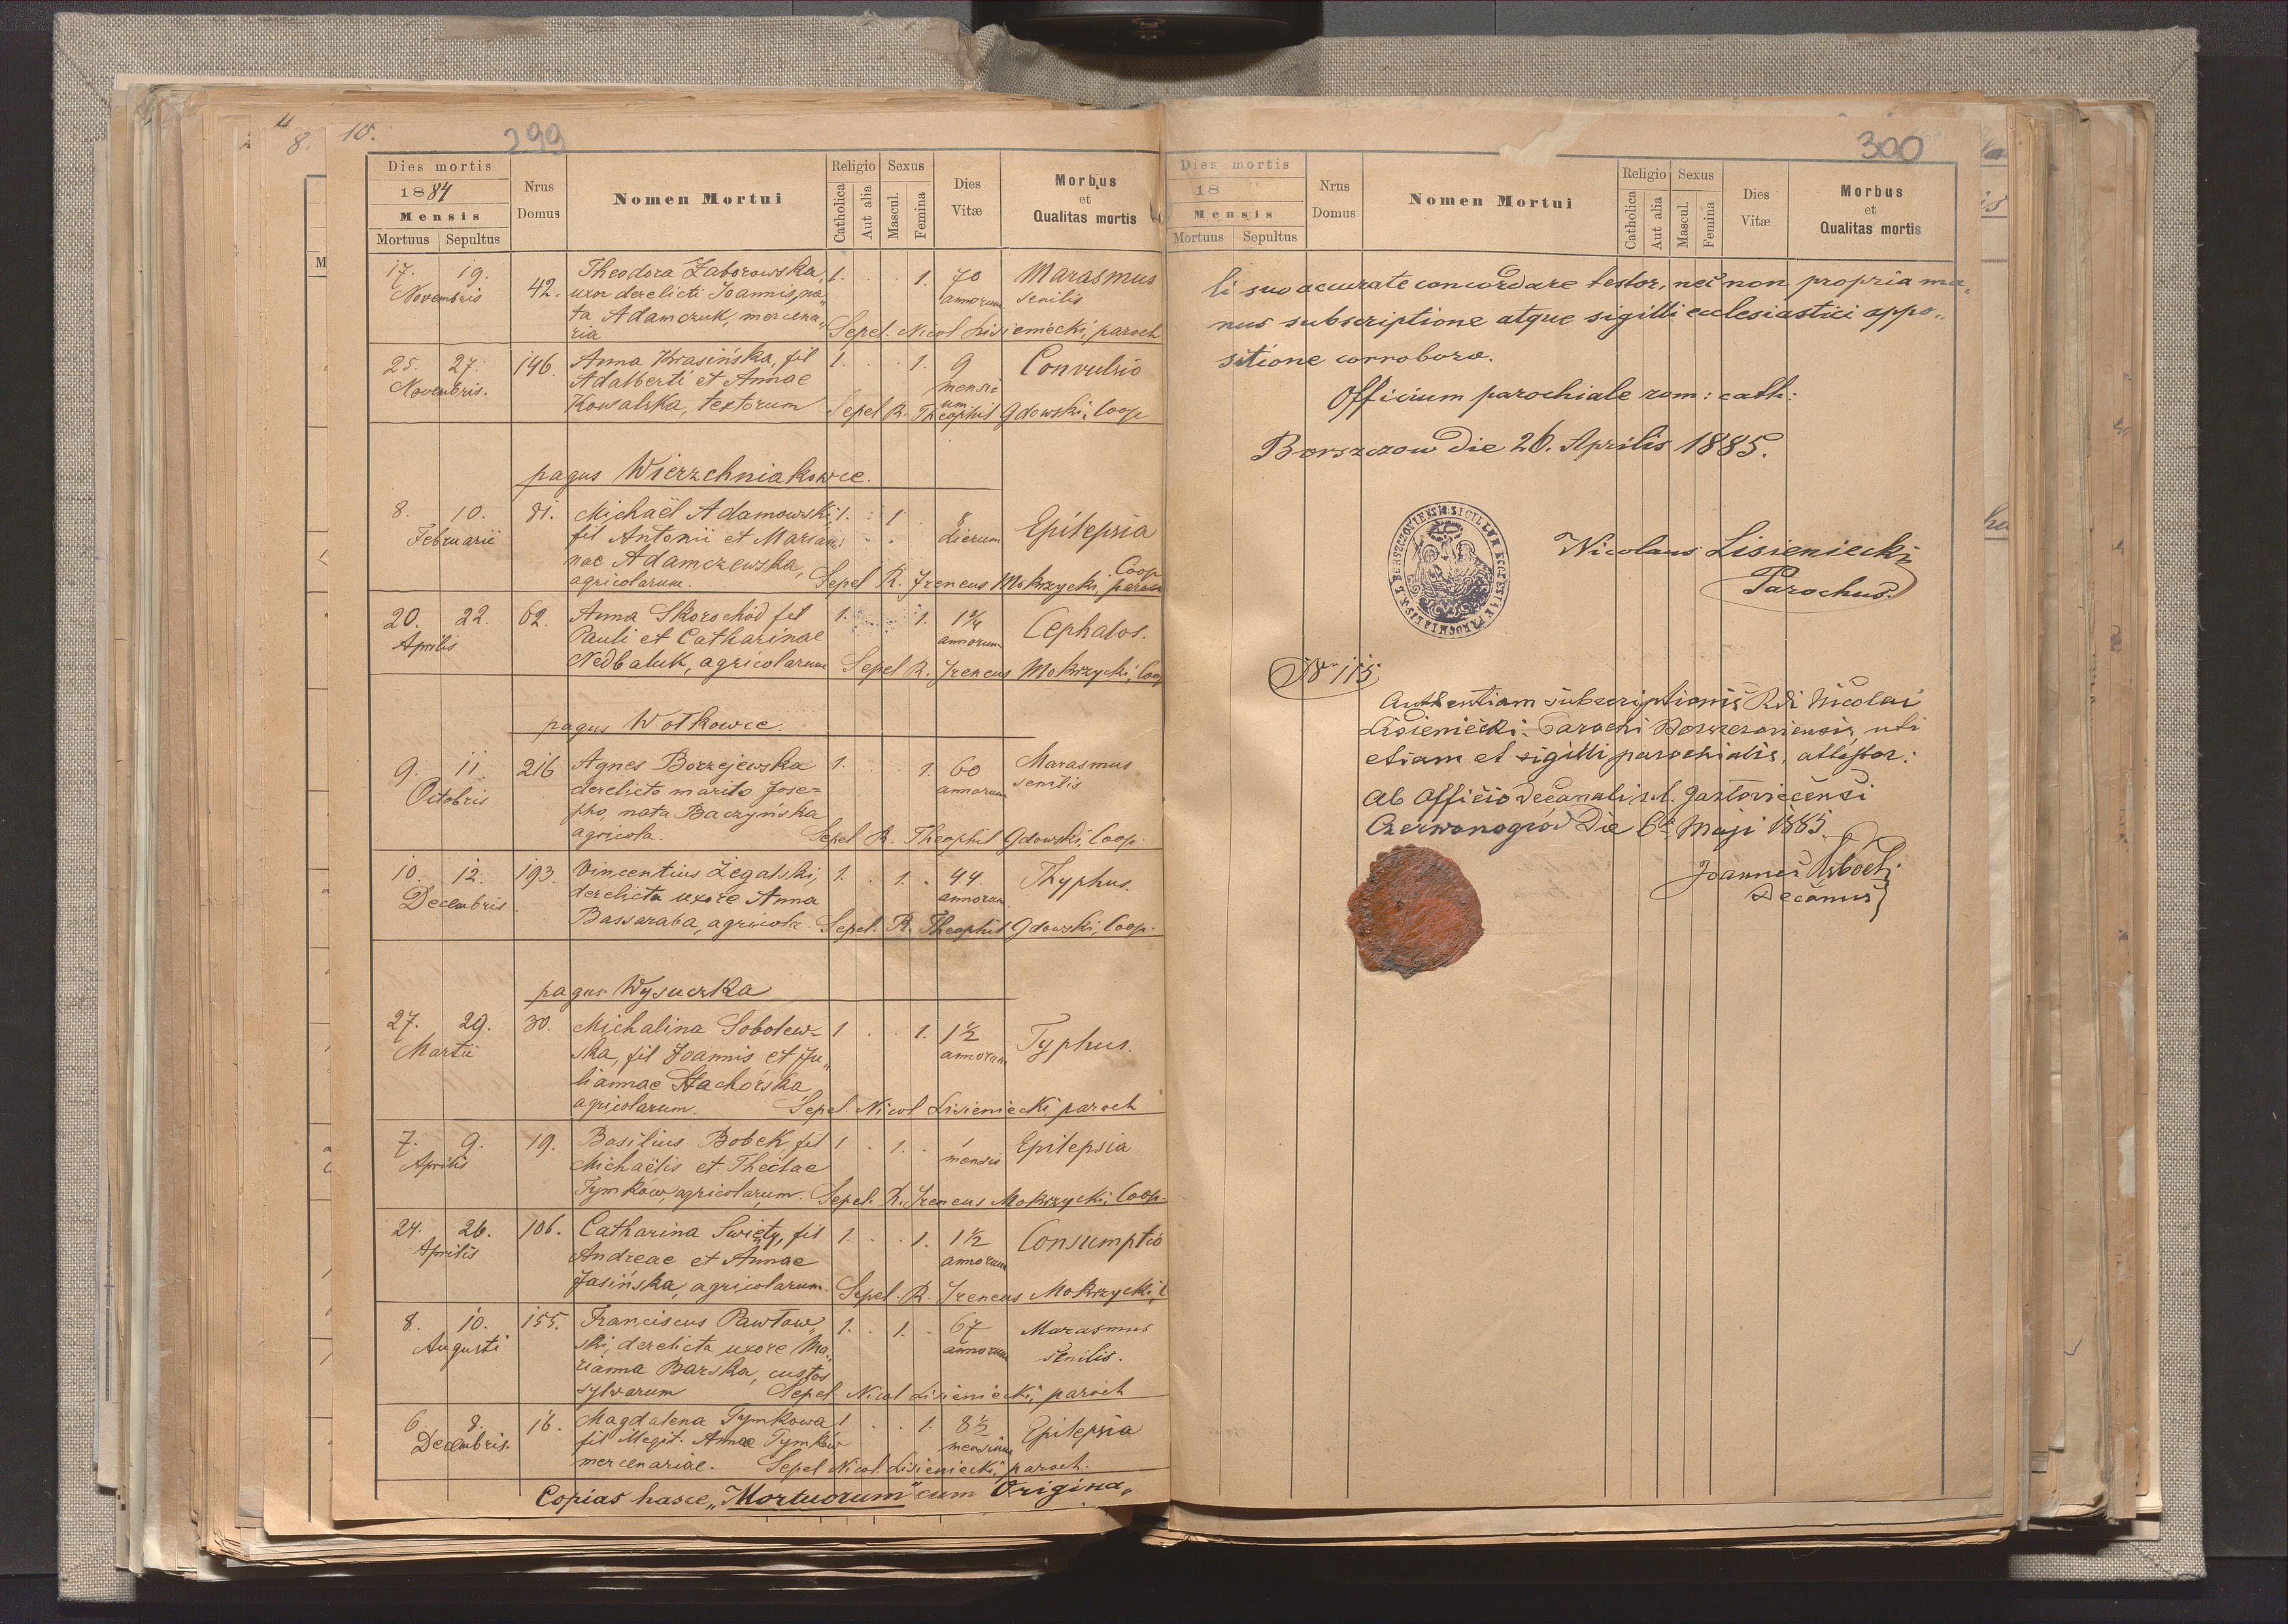 4
8.
10.
299
Dies mortis
1884
Mensis
Mortuus Sepultus
Nrus Domus
Nomen Mortui
Religio
Catholica
Aut alia
Sexus
Mascul.
Femina
Dies Vitæ
Morbus et Qualitas mortis
17. 19. 42. Theodora Zaborowska, 1. . . 1. 70 Marasmus
Novembris uxor derelicti Joannis, na„ annorum senilis
ta Adamczuk, mercena„
ria Sepel. Nicol Lisieniecki, paroch
25. 27. 146. Anna Krasińska, fil 1. . . 1. 9 Convulsio
Novembris. Adalberti et Annae mensi
um
Kowalska, textorum Sepel R. Theophil Gdowski, Coop
pagus Wierzchniakowce.
8. 10. 81. Michaël Adamowski, 1. . 1 . 8 Epilepsia
Februarii fil Antonii et Marian dierum
nae Adamczewska, Coop
agricolarum. Sepel R. Ireneus Mokrzycki,
20. 22. 62. Anna Skorochod fil 1. . . 1. 1¾ Cephalos.
Aprilis Pauli et Catharinae annorum
Nedbaluk, agricolarum Sepel R. Ireneus Mokrzycki, Coop
pagus Wołkowce.
9. 11. 216 Agnes Borzejewska 1. . . 1. 60 Marasmus
Octobris derelicto marito Jose= annorum senilis
pho, nata Baczyńska
agricola. Sepel R. Theophil Gdowski, Coop.
10. 12. 193. Vincentius Żegalski, 1. . 1. . 44. Thyphus.
Decembris. derelicta uxore Anna annorum
Bassaraba, agricola. Sepel. R. Theophil Gdowski, Coop.
pagus Wysuczka
27. 29. 30. Michalina Sobolew= 1 . . 1. 1½ Typhus.
Martii ska, fil Joannis et Ju„ annorum
liannae Stachórska,
agricolarum. Sepel. Nicol Lisieniecki, paroch
7. 9. 19. Basilius Bobek, fil 1 . 1. . 1 Epilepsia
Aprilis Michaëlis et Theclae mensis
Tymków, agricolarum. Sepel. R. Ireneus Mokrzycki, Coop.
24. 26. 106. Catharina Swięty, fil 1. . . 1. 1½ Consumptio
Aprilis Andreae et Annae annorum
Jasińska, agricolarum. Sepel. R. Ireneus Mokrzycki, C
8. 10. 155. Franciscus Pawłow„ 1. . 1. . 67 Marasmus
Augusti ski, derelicta uxore Ma„ annorum senilis.
rianna Barska, custos
sylvarum Sepel. Nicol Lisieniecki, paroch
6. 8. 16. Magdalena Tymkowa, 1 . . 1. 8½ Epilepsia
Decembris. fil illegit. Annae Tymków mensium
mercenariae. Sepel Nicol. Lisieniecki, paroch.
Copias hasce „Mortuorum" cum Origina„
300
Dies mortis
18
Mensis
Mortuus Sepultus
Nrus Domus
Nomen Mortui
Religio
Catholica
Aut alia
Sexus
Mascul.
Femina
Dies Vitæ
Morbus et Qualitas mortis
li suo accurate concordare testor, nec non propria ma„
nus subscriptione atque sigilli ecclesiastici appo„
sitione corroboro.
Officium parochiale rom: cath:
Borszczow die 26. Aprilis 1885.
Nicolaus Lisieniecki
Parochus.
Nr 115
Authentiam subscriptionis Rdi Nicolai
Lisieniecki Parochi Borszczoviensis, uti
etiam et sigilli parochialis, attestor:
Ab Officio decanali r. l. Jazłoviecensi
Czerwonogród Die 6t Maji 1885.
Joannes
Decanus